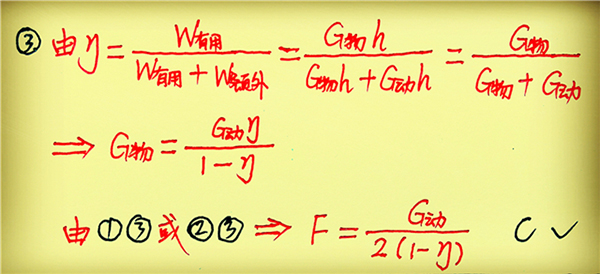 ③ 由η = W有用 / (W有用 + W额外) = G物h / (G物h + G动h) = G物 / (G物 + G动)
⇒ G物 = G动η / (1 - η)
由①③或②③ ⇒ F = G动 / 2(1-η) C ✓